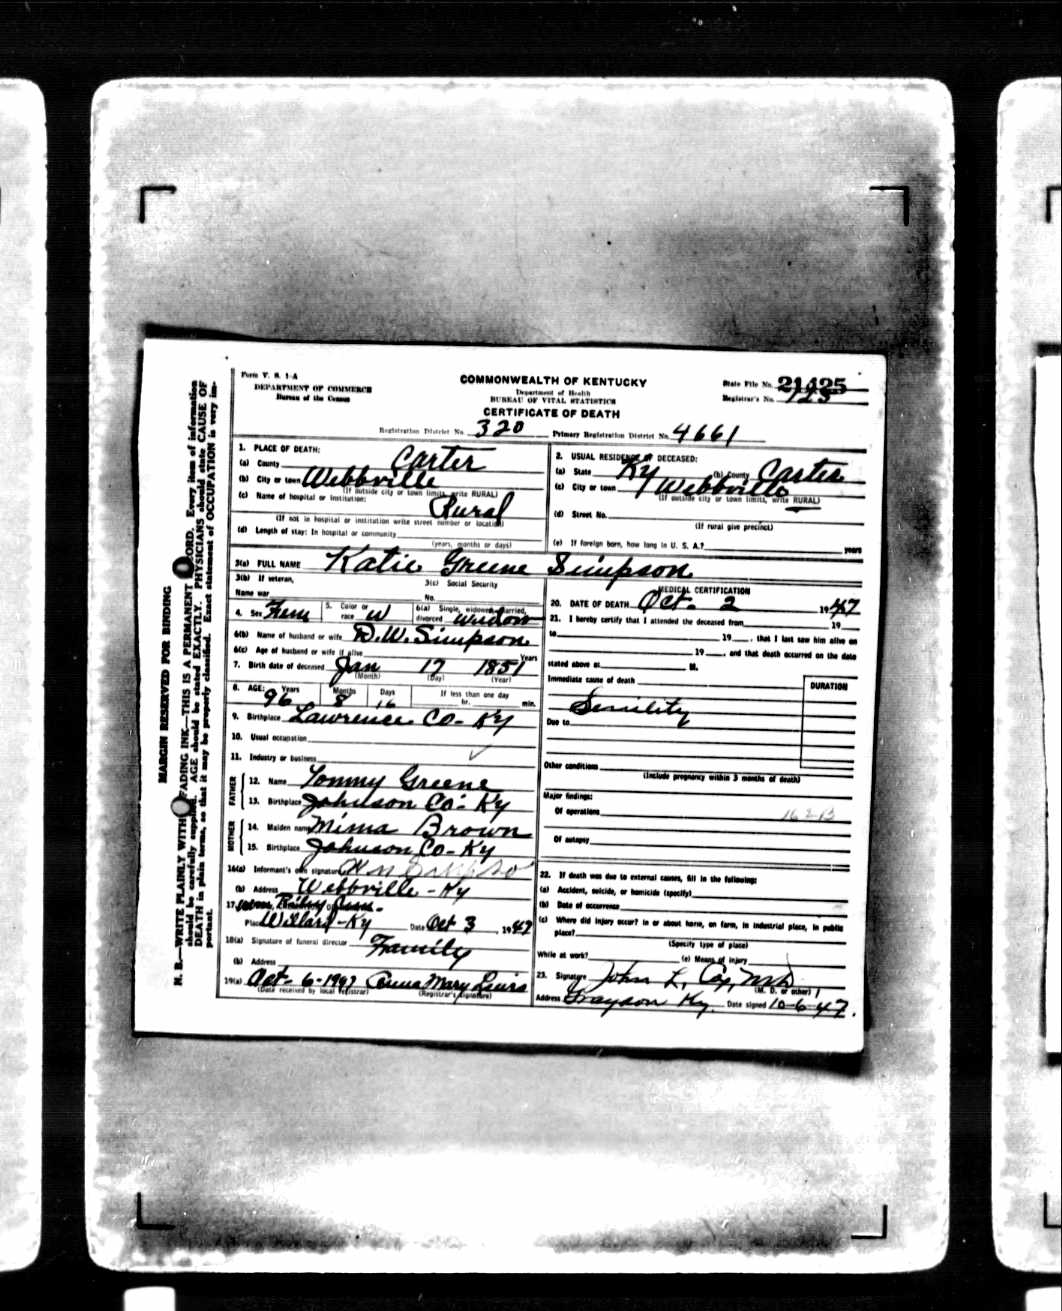 Form V. S. 1-A
DEPARTMENT OF COMMERCE
Bureau of the Census
COMMONWEALTH OF KENTUCKY
Department of Health
BUREAU OF VITAL STATISTICS
CERTIFICATE OF DEATH
State File No. 21425
Registrar's No. 125
Registration District No. 320 Primary Registration District No. 4661
1. PLACE OF DEATH:
(a) County Carter
(b) City or town Webbville
(If outside city or town limits, write RURAL)
(c) Name of hospital or institution: Rural
(If not in hospital or institution write street number or location)
(d) Length of stay: In hospital or community
(years, months or days)
2. USUAL RESIDENCE OF DECEASED:
(a) State Ky (b) County Carter
(c) City or town Webbville
(If outside city or town limits, write RURAL)
(d) Street No.
(If rural give precinct)
(e) If foreign born, how long in U. S. A.? years
3(a) FULL NAME Katie Greene Simpson
3(b) If veteran,
Name war
3(c) Social Security
No.
4. Sex Fem 5. Color or race W 6(a) Single, widowed, married, divorced widow
6(b) Name of husband or wife D.W. Simpson
6(c) Age of husband or wife if alive Years
7. Birth date of deceased Jan 17 1851
(Month) (Day) (Year)
8. AGE: Years 96 Months 8 Days 16 If less than one day hr. min.
9. Birthplace Lawrence Co- Ky
10. Usual occupation
11. Industry or business
FATHER
12. Name Tommy Greene
13. Birthplace Johnson Co- Ky
MOTHER
14. Maiden name Mima Brown
15. Birthplace Johnson Co- Ky
16(a) Informant's own signature
(b) Address Webbville - Ky
17.
Place Willard - Ky Date Oct 3, 1947
18(a) Signature of funeral director Family
(b) Address
19(a) Oct- 6-1947
(Date received by local registrar) (Registrar's signature)
MEDICAL CERTIFICATION
20. DATE OF DEATH Oct- 2 1947
21. I hereby certify that I attended the deceased from 19
to 19, that I last saw him alive on
19, and that death occurred on the date
stated above at M.
Immediate cause of death DURATION
Senility
Due to
Other conditions
(Include pregnancy within 3 months of death)
Major findings:
Of operations
Of autopsy
22. If death was due to external causes, fill in the following:
(a) Accident, suicide, or homicide (specify)
(b) Date of occurrence
(c) Where did injury occur? in or about home, on farm, in industrial place, in public
place?
(Specify type of place)
While at work? (e) Means of injury
23. Signature John L. Cox, MD
(M. D. or other)
Address Grayson Ky. Date signed 10-6-47.
MARGIN RESERVED FOR BINDING
N. B.—WRITE PLAINLY WITH FADING INK—THIS IS A PERMANENT RECORD. Every item of information
should be carefully supplied. AGE should be stated EXACTLY. PHYSICIANS should state CAUSE OF
DEATH in plain terms, so that it may be properly classified. Exact statement of OCCUPATION is very im-
portant.